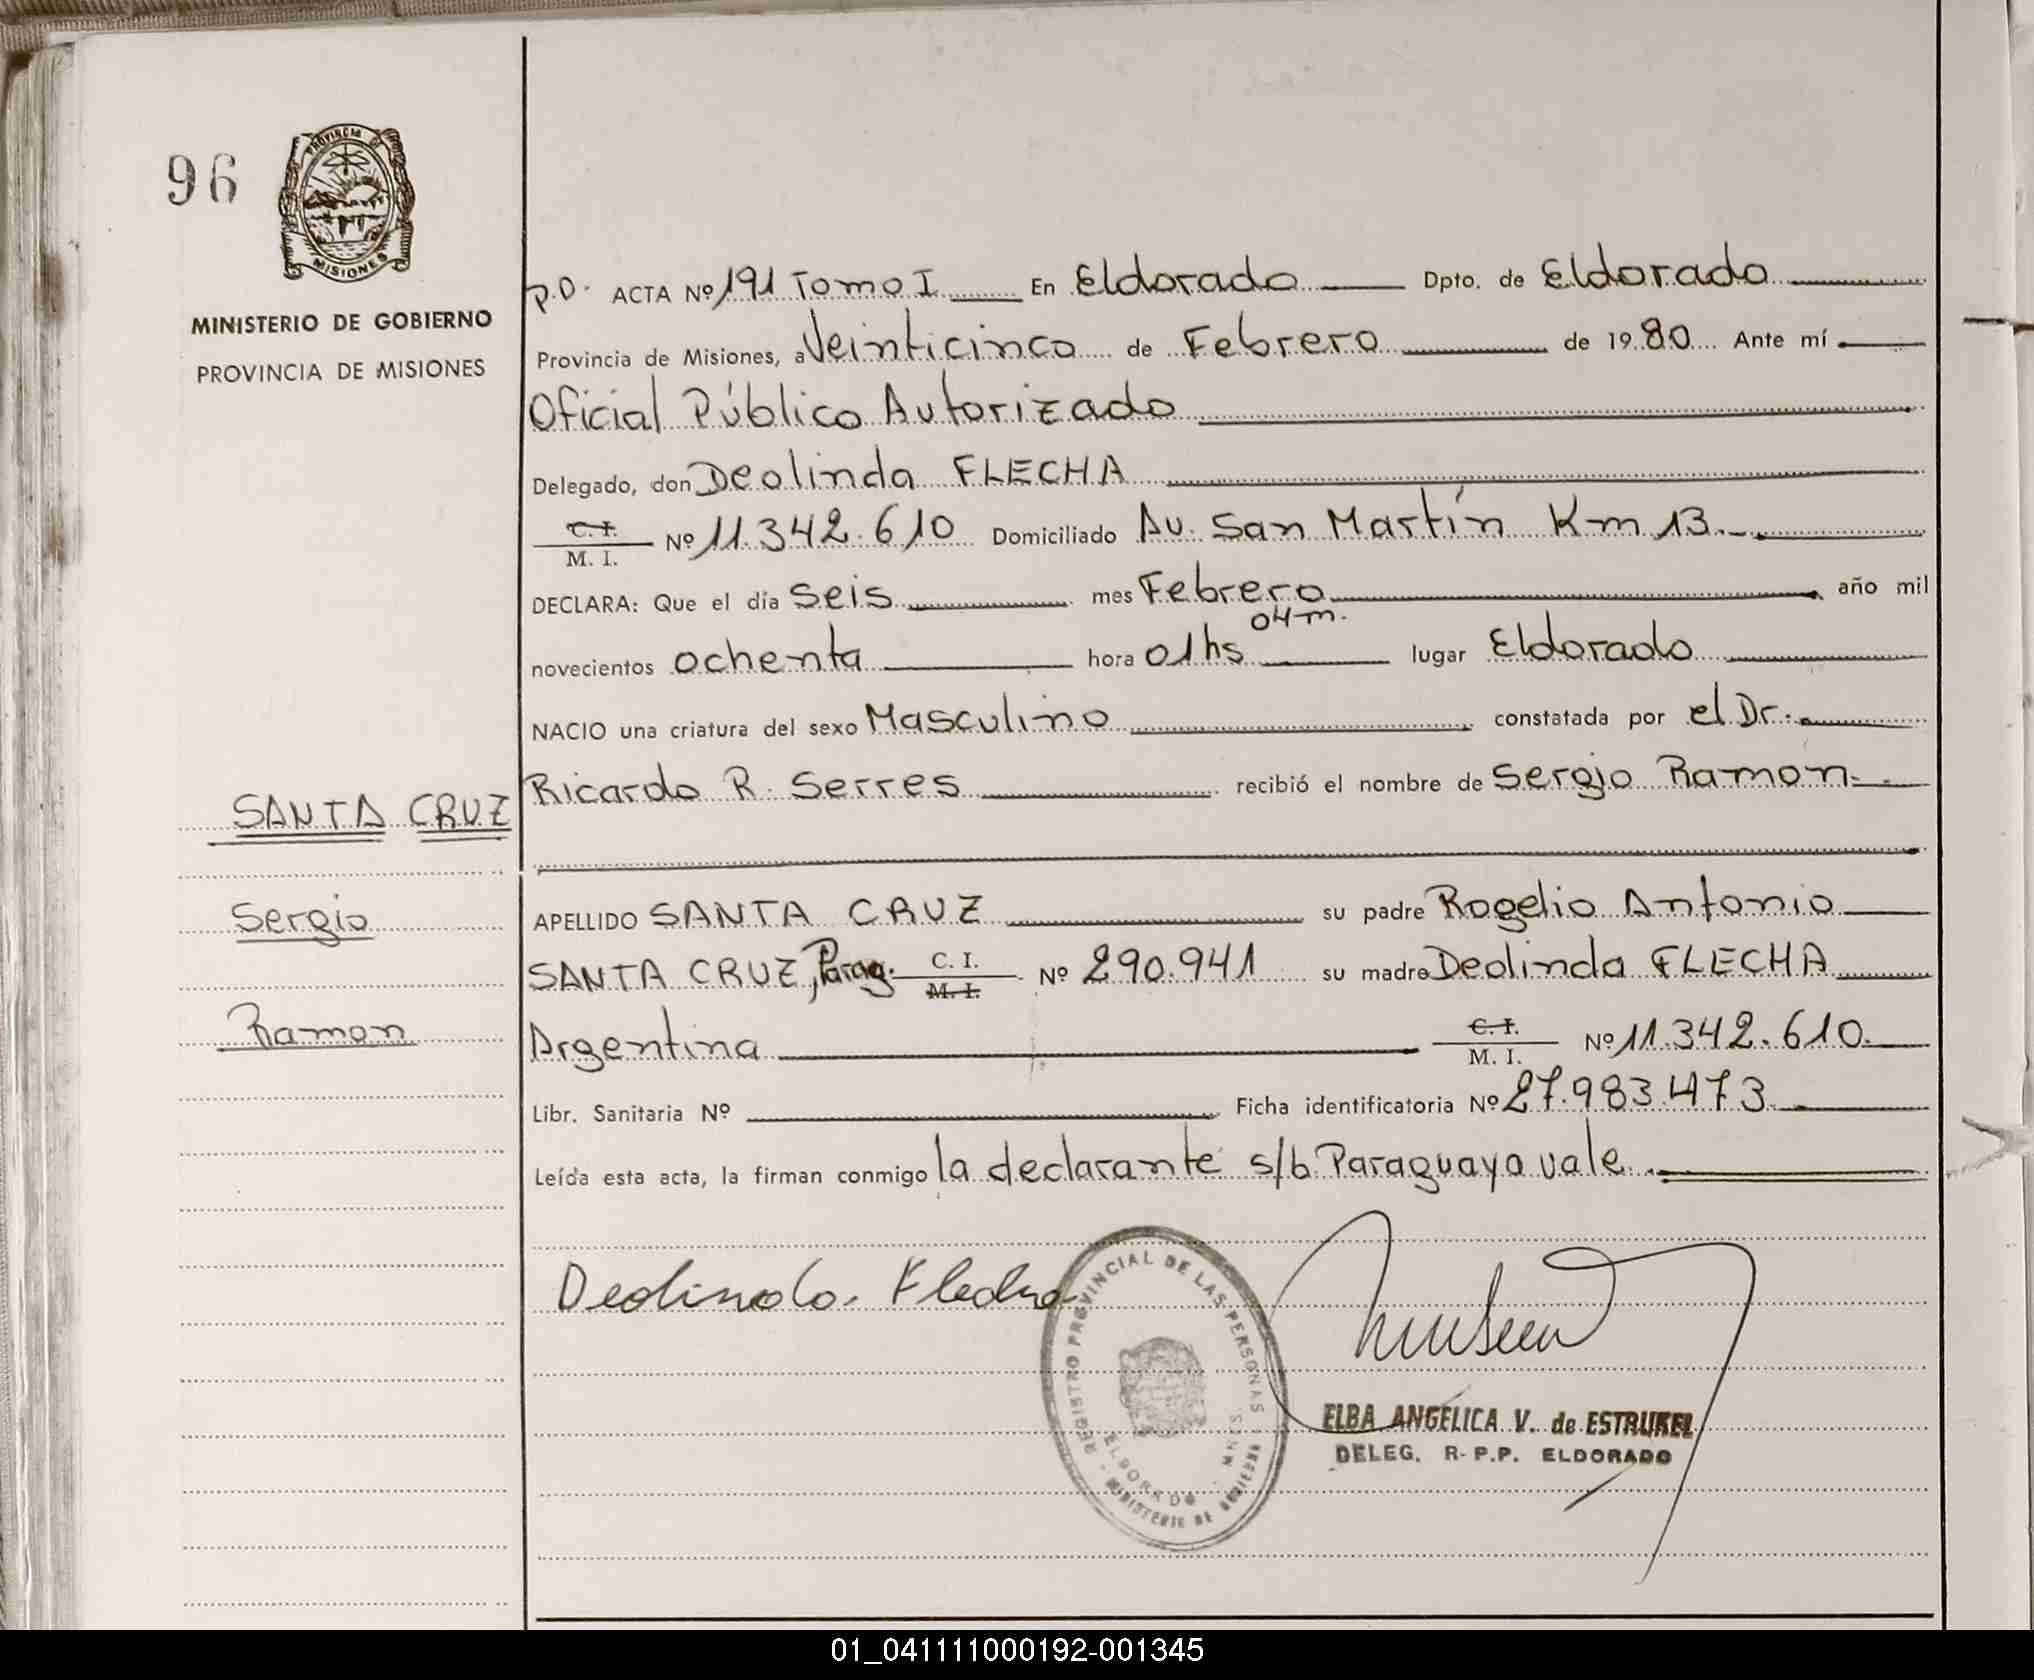 96
PROVINCIA DE
MISIONES
MINISTERIO DE GOBIERNO
PROVINCIA DE MISIONES
SANTA CRUZ
Sergio
Ramon
p.D. ACTA Nº 191 Tomo I En Eldorado Dpto. de Eldorado
Provincia de Misiones, a Veinticinco de Febrero de 1980 Ante mí
Oficial Público Autorizado
Delegado, don Deolinda FLECHA
C. I.
M. I. Nº 11.342.610 Domiciliado Av. San Martín Km 13.
DECLARA: Que el día seis mes Febrero año mil
novecientos ochenta hora 01hs 04m. lugar Eldorado
NACIO una criatura del sexo Masculino constatada por el Dr.
Ricardo R. Serres recibió el nombre de Sergio Ramon
APELLIDO SANTA CRUZ su padre Rogelio Antonio
SANTA CRUZ, Parag. C. I. M. I. Nº 290.941 su madre Deolinda FLECHA
Argentina C. I. M. I. Nº 11.342.610
Libr. Sanitaria Nº Ficha identificatoria Nº 27.983.473
Leída esta acta, la firman conmigo la declarante s/b Paraguaya vale
Deolinda Flecha
REGISTRO PROVINCIAL DE LAS PERSONAS
ELDORADO - MNES.
MINISTERIO DE GOBIERNO
ELBA ANGELICA V. de ESTRUKEL
DELEG. R-P.P. ELDORADO
01_041111000192-001345